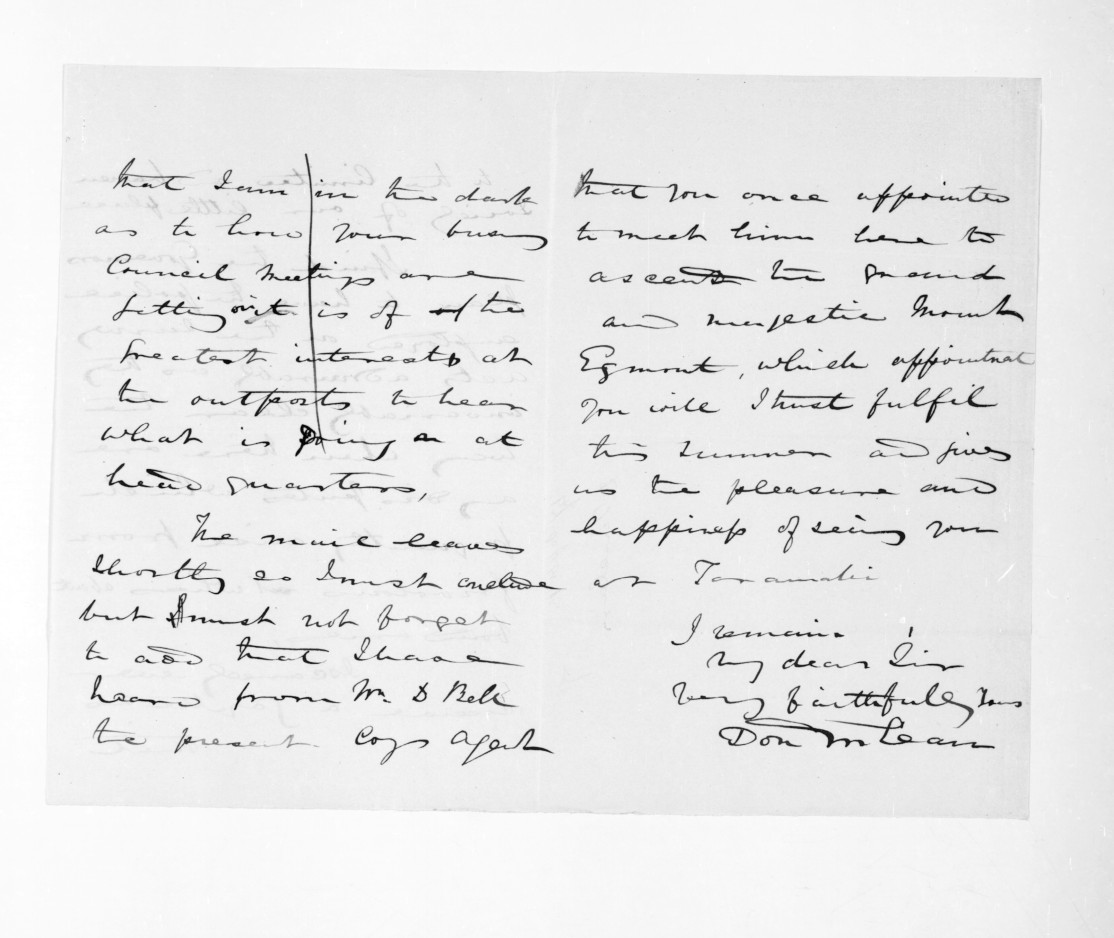 that I am in the dark
as to how your busy
Council meetings are
getting on it is of the
greatest interest at
the outposts to hear
what is going on at
head quarters,
The mail leaves
shortly so I must conclude
but I must not forget
to add that I have
heard from Mr. D Bell
the present Coys Agent
that you once appointed
to meet him here to
ascend the grand
and majestic Mount
Egmont, which appointment
you will I trust fulfil
this summer and give
us the pleasure and
happiness of seeing you
at Taranaki
I remain
My dear Sir
Very faithfully Yours
Don McLean